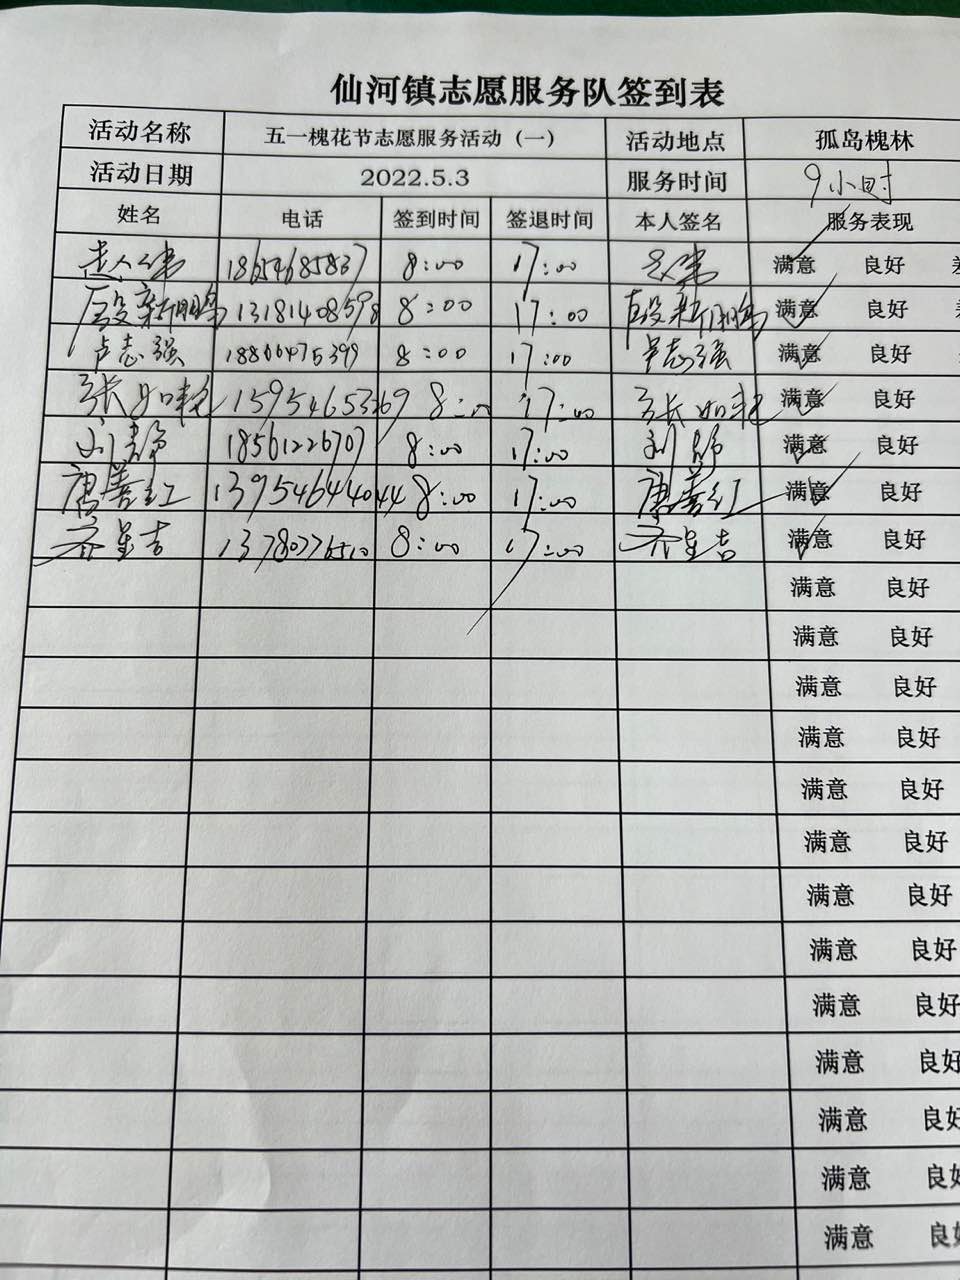 仙河镇志愿服务队签到表
活动名称 五一槐花节志愿服务活动（一） 活动地点 孤岛槐林
活动日期 2022.5.3 服务时间 9小时
姓名 电话 签到时间 签退时间 本人签名 服务表现
8:00 17:00 满意 良好
新鹏 8:00 17:00 新鹏 满意 良好
卢志强 8:00 17:00 卢志强 满意 良好
张如艳 8:00 17:00 张如艳 满意 良好
刘静 18561226707 8:00 17:00 刘静 满意 良好
唐善红 13954644044 8:00 17:00 唐善红 满意 良好
齐星吉 13780776510 8:00 17:00 齐星吉 满意 良好
满意 良好
满意 良好
满意 良好
满意 良好
满意 良好
满意 良好
满意 良好
满意 良好
满意 良好
满意 良好
满意 良好
满意 良好
满意 良好